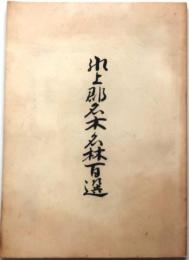 氷上郡名木名林百選